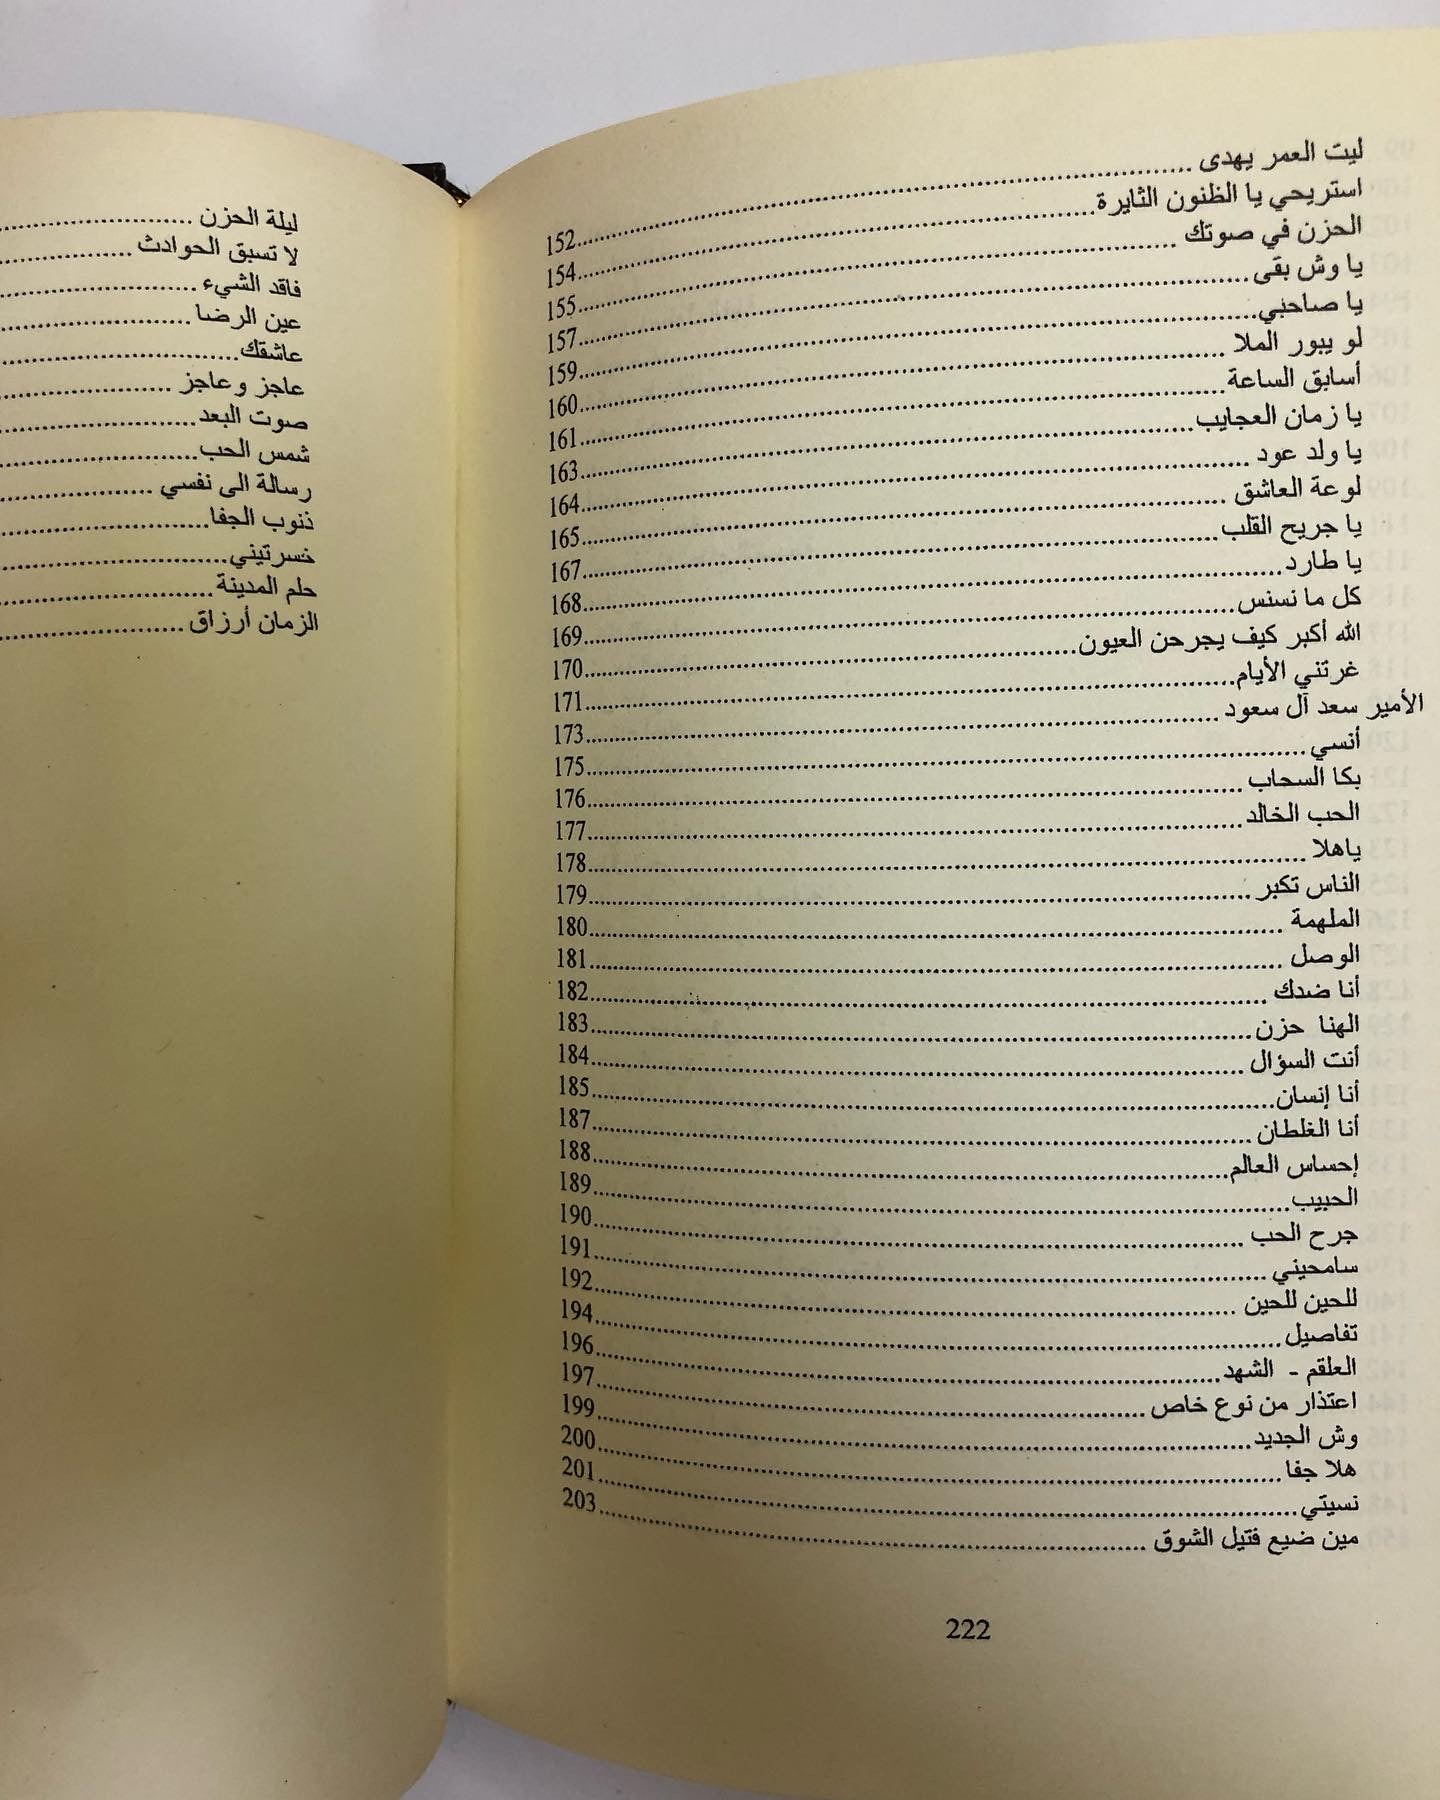 ليت العمر يهدى ........ 152
استريحي يا الظنون الثايرة ........ 154
الحزن في صوتك ........ 155
يا وش بقى ........ 157
يا صاحبي ........ 159
لو يبور الملا ........ 160
أسابق الساعة ........ 161
يا زمان العجايب ........ 163
يا ولد عود ........ 164
لوعة العاشق ........ 165
يا جريح القلب ........ 167
يا طارد ........ 168
كل ما نسنس ........ 169
الله أكبر كيف يجرحن العيون ........ 170
غرتني الأيام ........ 171
الأمير سعد آل سعود ........ 173
أنسي ........ 175
بكا السحاب ........ 176
الحب الخالد ........ 177
ياهلا ........ 178
الناس تكبر ........ 179
الملهمة ........ 180
الوصل ........ 181
أنا ضدك ........ 182
الهنا حزن ........ 183
أنت السؤال ........ 184
أنا إنسان ........ 185
أنا الغلطان ........ 187
إحساس العالم ........ 188
الحبيب ........ 189
جرح الحب ........ 190
سامحيني ........ 191
للحين للحين ........ 192
تفاصيل ........ 194
العلقم - الشهد ........ 196
اعتذار من نوع خاص ........ 197
وش الجديد ........ 199
هلا جفا ........ 200
نسيتي ........ 201
مين ضيع فتيل الشوق ........ 203
222
ليلة الحزن ........
لا تسبق الحوادث ........
فاقد الشيء ........
عين الرضا ........
عاشقك ........
عاجز وعاجز ........
صوت البعد ........
شمس الحب ........
رسالة الى نفسي ........
ذنوب الجفا ........
خسرتيني ........
حلم المدينة ........
الزمان أرزاق ........